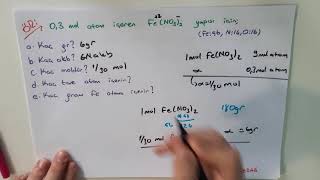 0,3 mol atom içeren Fe(NO₃)₂ yapısı için;
(Fe:56, N:14, O:16)
a. Kaç gr? 6gr
b. Kaç akb? 6NAakb
c. Kaç moldür? 1/30 mol
d. Kaç tane atom içerir?
e. Kaç gram Fe atomu içerir?
1mol Fe(NO₃)₂ 9mol atom
1mol Fe(NO₃)₂ 180gr
1/30 mol x = 6gr